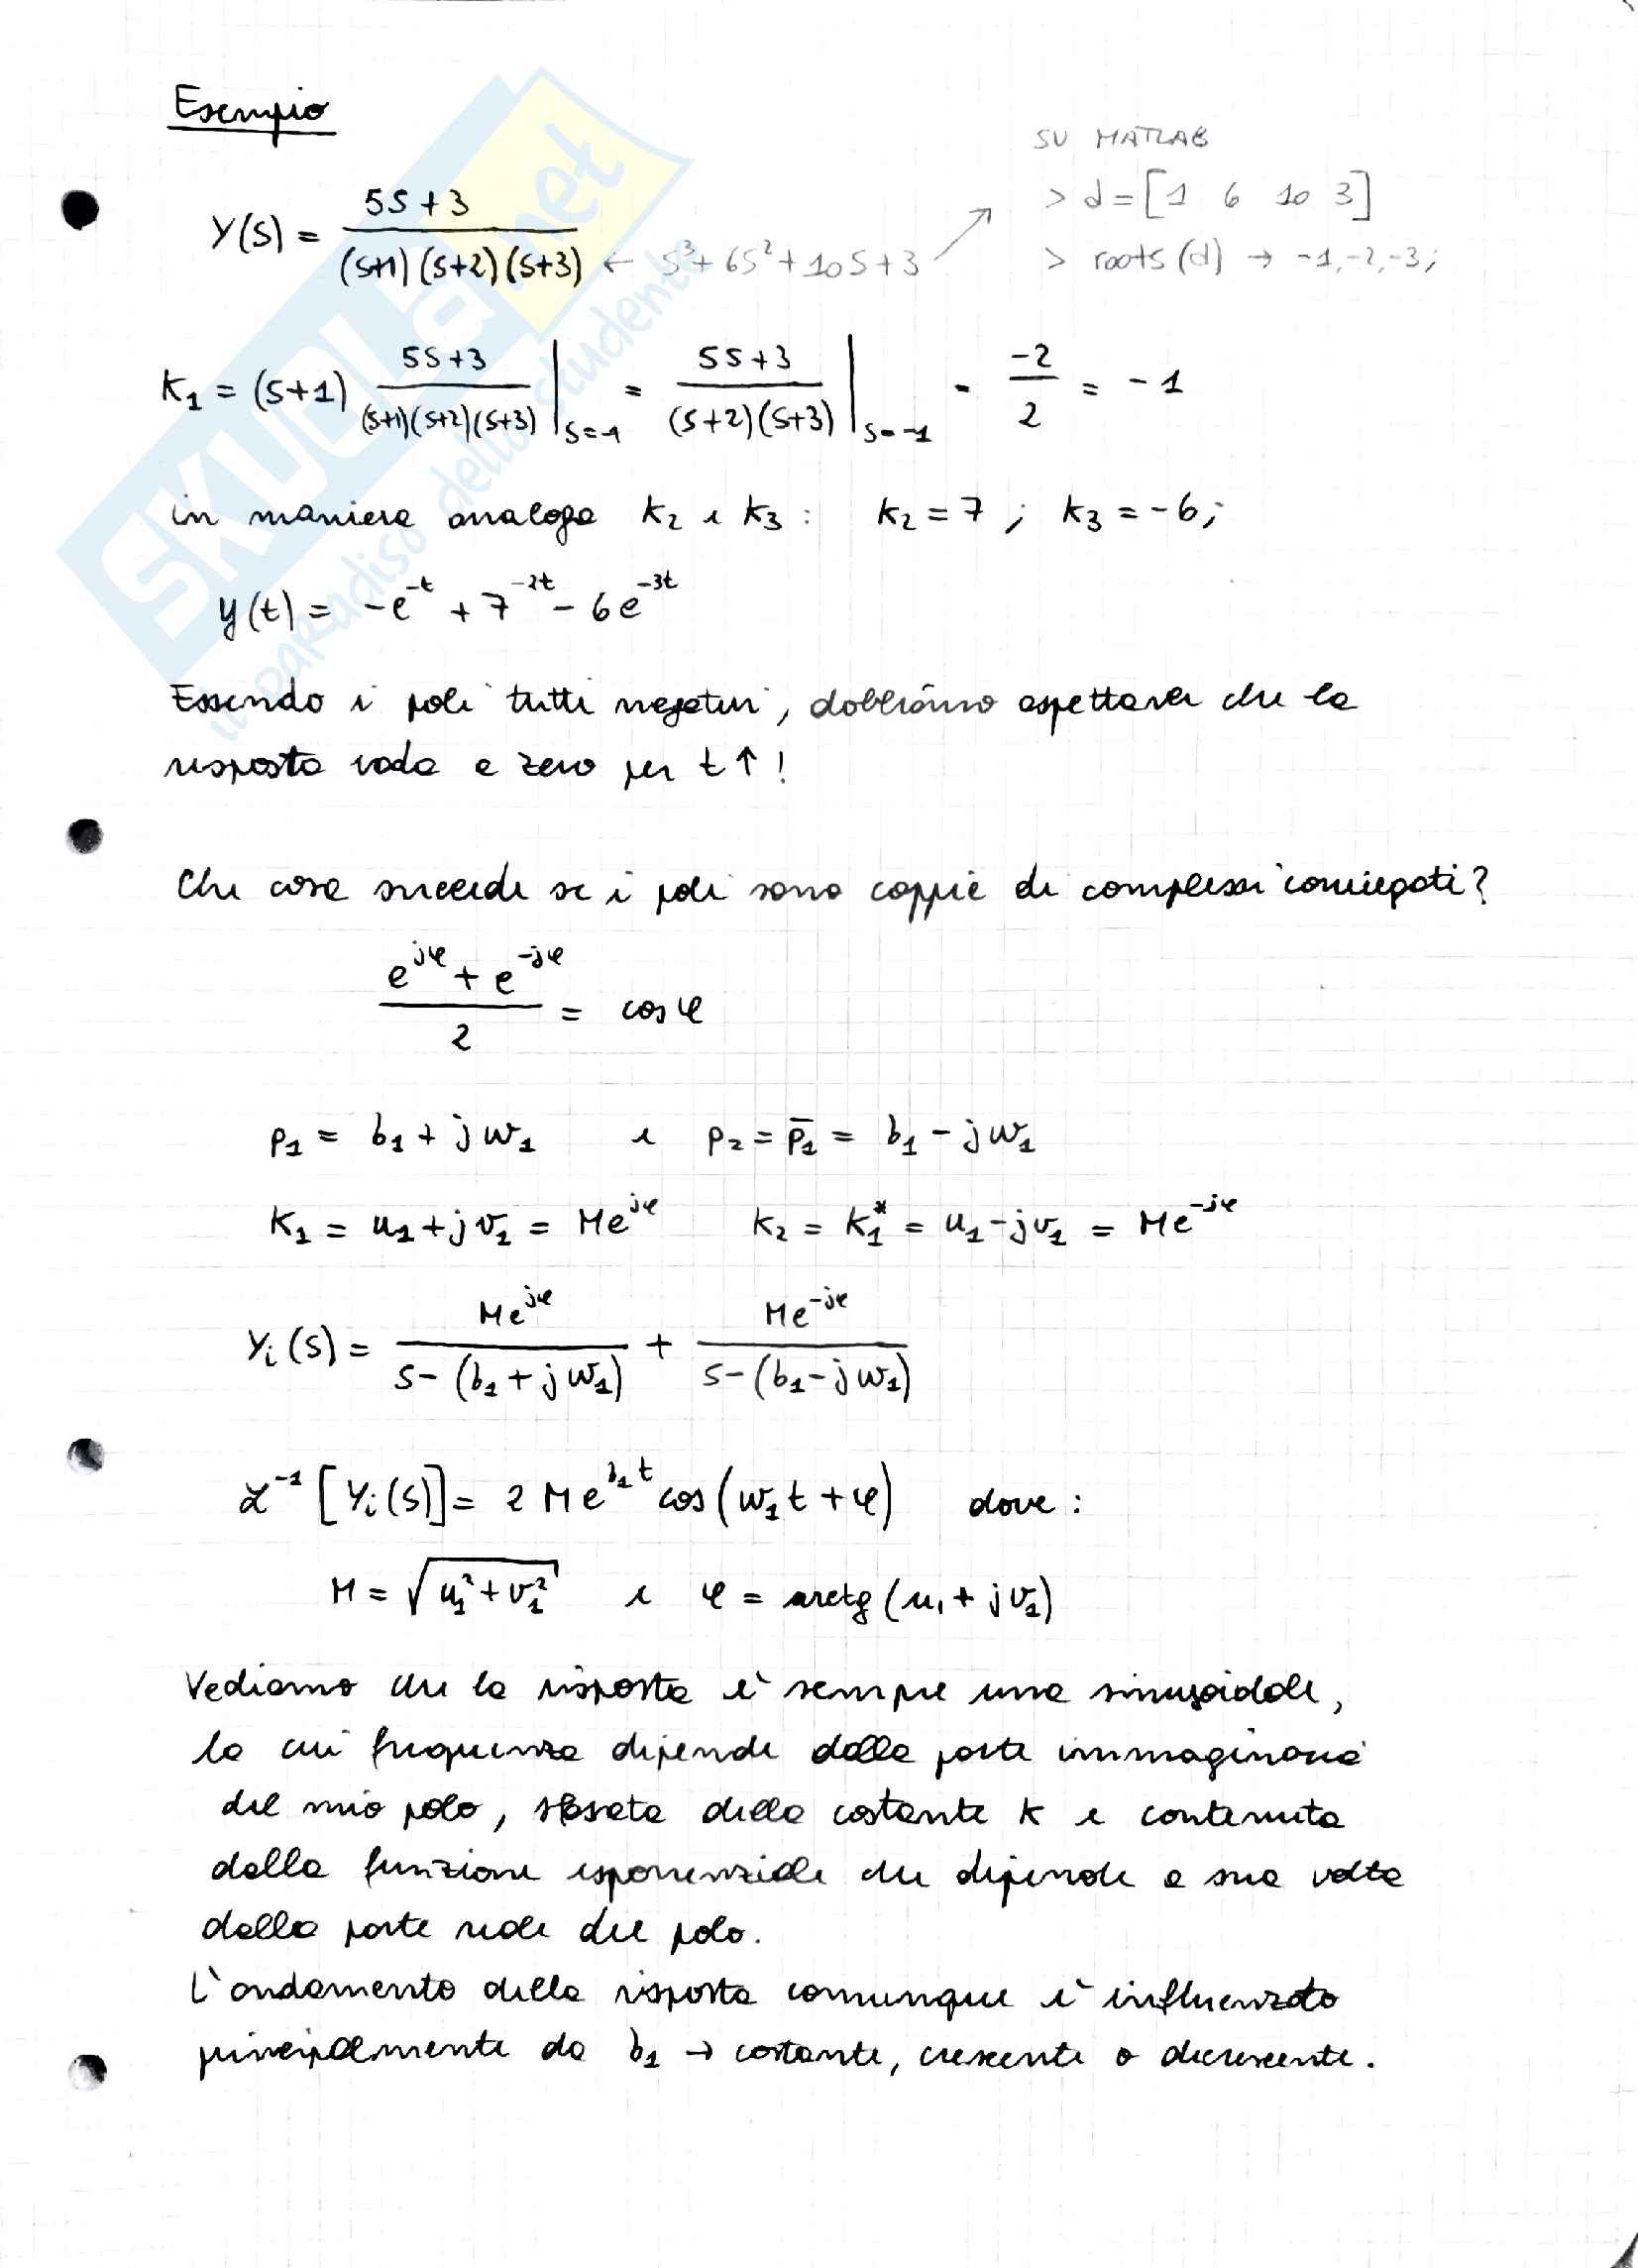 Esempio
SU MATLAB
> d = [1 6 10 3]
> roots(d) → -1,-2,-3;
Y(S) = (5S+3) / ((S+1)(S+2)(S+3)) ← S³+6S²+10S+3
K₁ = (S+1) (5S+3) / ((S+1)(S+2)(S+3)) |S=-1 = (5S+3) / ((S+2)(S+3)) |S=-1 = -2/2 = -1
in maniera analoga K₂ e K₃: K₂=7; K₃=-6;
y(t) = -e^-t + 7^-2t - 6e^-3t
Essendo i poli tutti negativi, dobbiamo aspettarci che la
risposta vada a zero per t↑!
Che cosa succede se i poli sono coppie di complessi coniugati?
(e^jφ + e^-jφ) / 2 = cosφ
p₁ = b₁ + jw₁ e p₂ = p̄₁ = b₁ - jw₁
K₁ = u₁+jv₁ = Me^jφ K₂ = K₁* = u₁-jv₁ = Me^-jφ
Yi(S) = Me^jφ / (S-(b₁+jw₁)) + Me^-jφ / (S-(b₁-jw₁))
ℒ⁻¹[Yi(S)] = 2Me^b₁t cos(w₁t+φ) dove:
M = √(u₁²+v₁²) e φ = arctg(u₁+jv₁)
Vediamo che la risposta è sempre una sinusoidale,
la cui frequenza dipende dalla parte immaginaria
del mio polo, sfasata della costante K e contenuta
dalla funzione esponenziale che dipende a sua volta
dalla parte reale del polo.
L'andamento della risposta comunque è influenzato
principalmente da b₁ → costante, crescente o decrescente.
SKUOLA.net
il paradiso dello studente